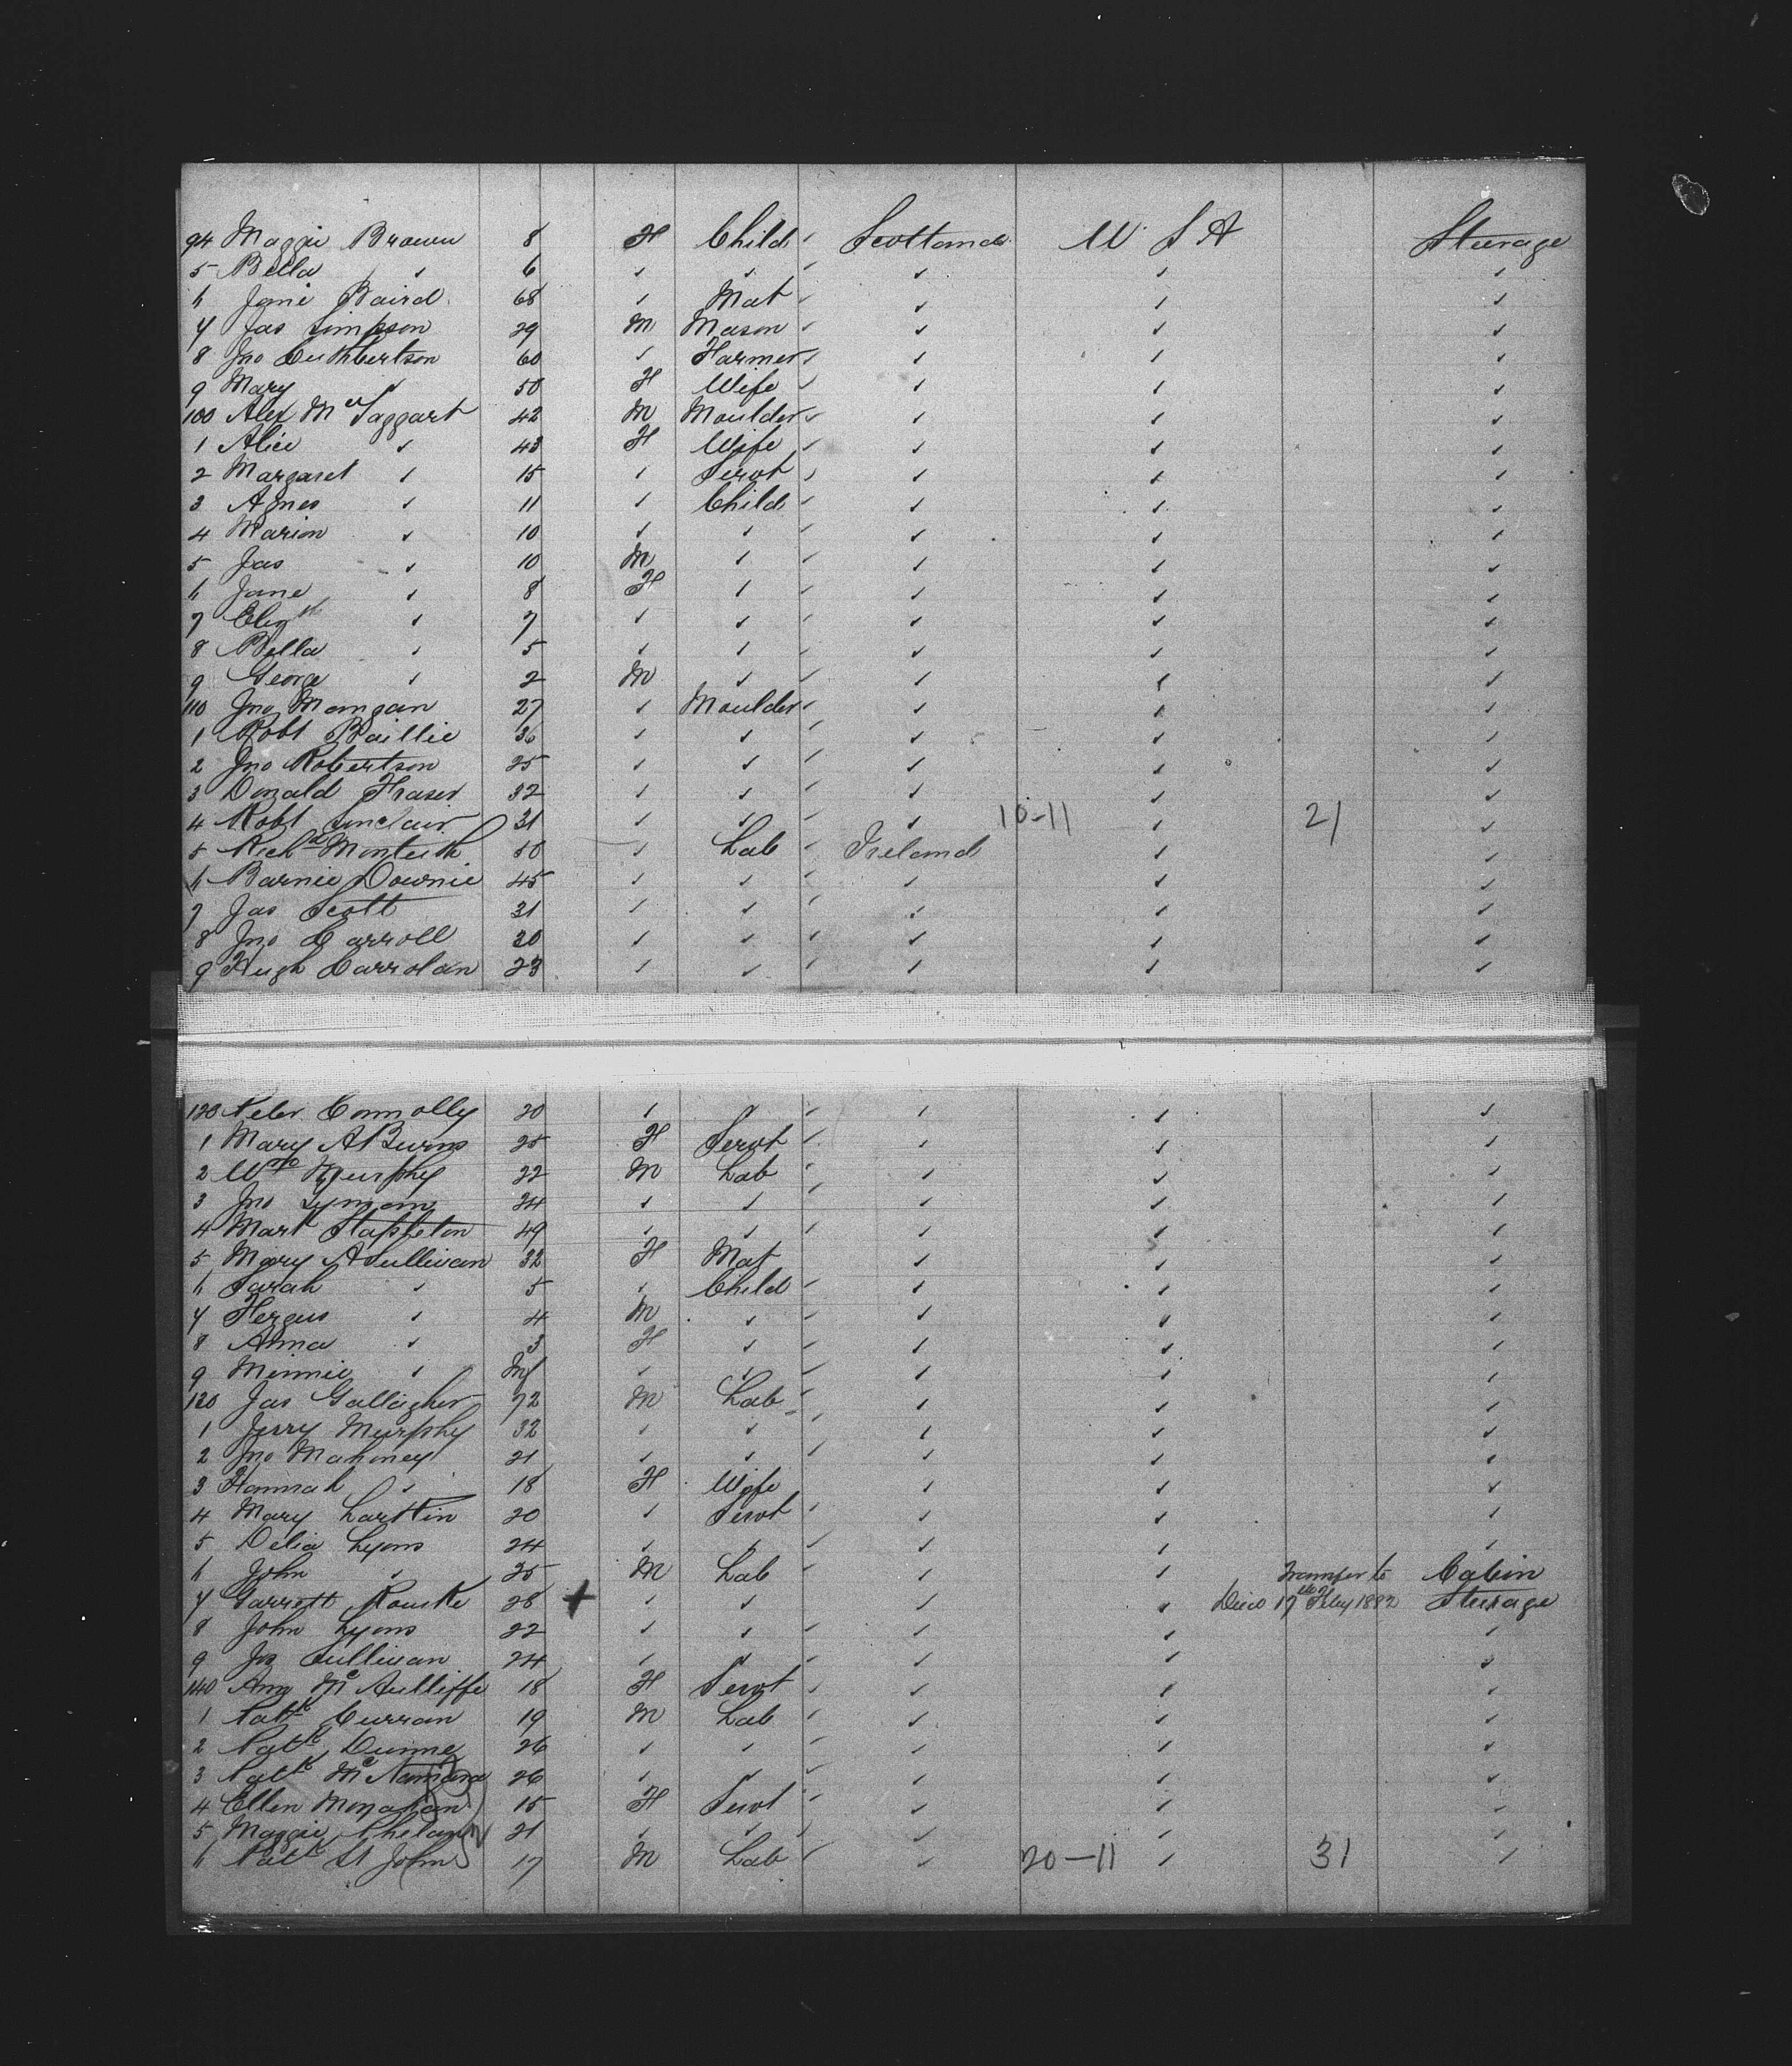 94 Maggie Brown 8 F Child Scotland U S A Steerage
5 Bella " 6 " " " " "
6 Jane Baird 68 " Mat " " "
7 Jas Simpson 29 M Mason " " "
8 Jno Cuthbertson 60 " Farmer " " "
9 Mary " 50 F Wife " " "
100 Alex McTaggart 42 M Moulder " " "
1 Alice " 43 F Wife " " "
2 Margaret " 15 " Servt " " "
3 Agnes " 11 " Child " " "
4 Marion " 10 " " " " "
5 Jas " 10 M " " " "
6 Jane " 8 F " " " "
7 Elizth " 7 " " " " "
8 Bella " 5 " " " " "
9 George " 2 M " " " "
110 Jno Mangan 27 " Moulder " " "
1 Robt Baillie 36 " " " " "
2 Jno Robertson 25 " " " " "
3 Donald Fraser 32 " " " " "
4 Robt Sinclair 31 " " " 10-11 " 21 "
5 Richd Monteith 50 " Lab Ireland " "
6 Barnie Downie 45 " " " " "
7 Jas Scott 31 " " " " "
8 Jno Carroll 30 " " " " "
9 Hugh Carrolan 23 " " " " "
120 Peter Connolly 20 " " " " "
1 Mary A Burns 25 F Servt " " "
2 Wm Murphy 22 M Lab " " "
3 Jno 24 " " " " "
4 Mark Stapleton 49 " " " " "
5 Mary A Sullivan 32 F Mat " " "
6 Sarah " 5 " Child " " "
7 Fergus " 4 M " " " "
8 Anna " 3 F " " " "
9 Minnie " Inf " " " " "
130 Jas Gallagher 72 M Lab " " "
1 Jerry Murphy 32 " " " " "
2 Jno Mahoney 21 " " " " "
3 Hannah " 18 F Wife " " "
4 Mary Larkin 20 " Servt " " "
5 Delia Lyons 24 " " " " "
6 John " 25 M Lab " " Transfer to Cabin
7 Garrett Rourke 28 + " " " " Died 17th Feby 1882 Steerage
8 John Lyons 22 " " " " "
9 Jas Sullivan 24 " " " " "
140 Amy McAulliffe 18 F Servt " " "
1 Patk Curran 19 M Lab " " "
2 Patk Dunne 26 " " " " "
3 Patk McNamara 26 " " " " "
4 Ellen Monahan 15 F Servt " " "
5 Maggie Phelan 21 " " " " "
6 Patk St John 17 M Lab " 20-11 " 31 "